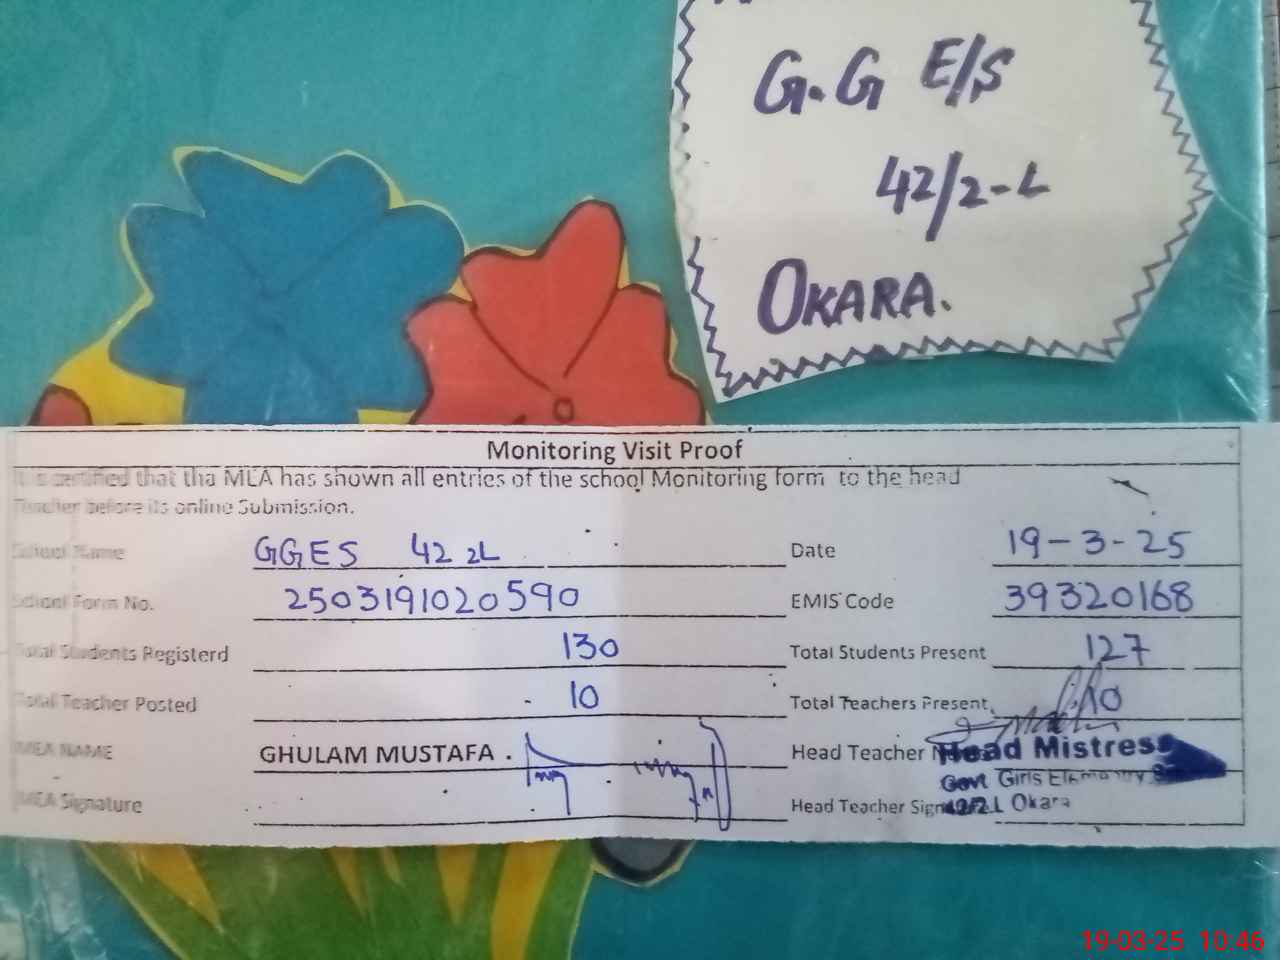 G.G E/S
42/2-L
OKARA.
Monitoring Visit Proof
It is certified that tha MEA has shown all entries of the school Monitoring form to the head
Teacher before its online Submission.
School Name GGES 42 2L Date 19-3-25
School Form No. 2503191020590 EMIS Code 39320168
Total Students Registerd 130 Total Students Present 127
Total Teacher Posted 10 Total Teachers Present 10
MEA NAME GHULAM MUSTAFA . Head Teacher
Head Mistress
Govt Girls
MEA Signature Head Teacher
42/2L Okara
19-03-25 10:46